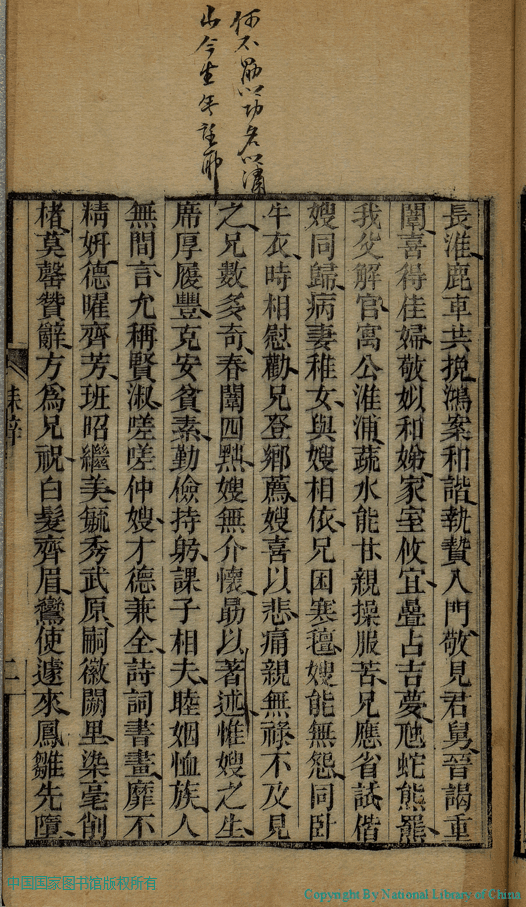 何不勗以功名以
今生
長淮鹿車共挽鴻案和諧執贄入門敬見君舅晉謁重
闈喜得佳婦敬姒和娣家室攸宜疊占吉夢虺蛇熊羆
我父解官寓公淮浦蔬水能甘親操服苦兄應省試偕
嫂同歸病妻稚女與嫂相依兄困寒氊嫂能無怨同卧
牛衣時相慰勸兄登鄉薦嫂喜以悲痛親無祿不及見
之兄數多奇春闈四點嫂無介懷勗以著述惟嫂之生
席厚履豐克安貧素勤儉持躬課子相夫睦姻恤族人
無間言尤稱賢淑嗟嗟仲嫂才德兼全詩詞書畫靡不
精妍德曜齊芳班昭繼美毓秀武原嗣徽闕里染毫削
楮莫罄贊辭方為兄祝白髮齊眉鸞使遽來鳳雛先墮
誄辭
二
中国国家图书馆版权所有
Copyright By National Library of China